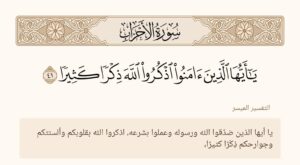 سُورَةُ الأَحْزَابِ
يَـٰٓأَيُّهَا ٱلَّذِينَ ءَامَنُوا۟ ٱذْكُرُوا۟ ٱللَّهَ ذِكْرًا كَثِيرًا ٤١
التفسير الميسر
يا أيها الذين صدَّقوا الله ورسوله وعملوا بشرعه، اذكروا الله بقلوبكم وألسنتكم
وجوارحكم ذِكْرًا كثيرًا،